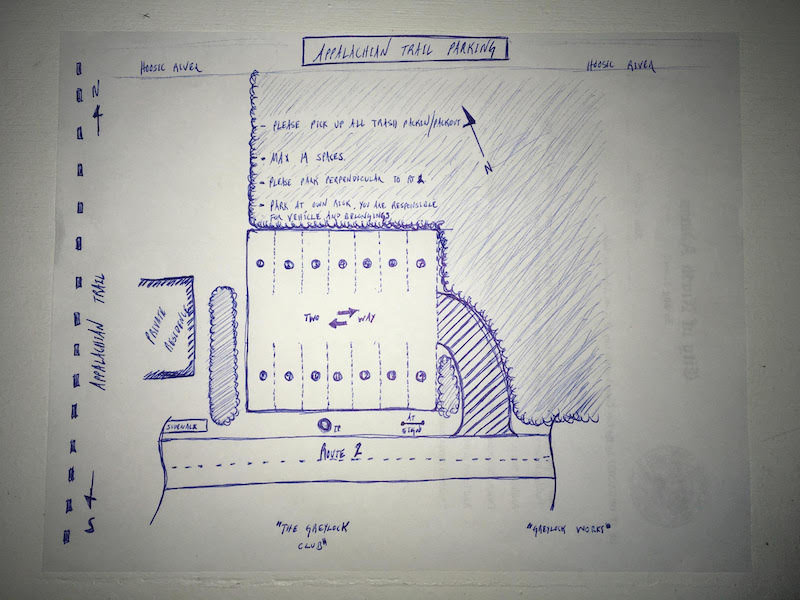 APPALACHIAN TRAIL PARKING
HOOSIC RIVER
HOOSIC RIVER
N
- PLEASE PICK UP ALL TRASH PACKIN/PACKOUT
- MAX 14 SPACES.
- PLEASE PARK PERPENDICULAR TO RT 2
- PARK AT OWN RISK, YOU ARE RESPONSIBLE
FOR VEHICLE AND BELONGINGS
N
1 2 3 4 5 6 7
TWO WAY
PRIVATE
RESIDENCE
APPALACHIAN TRAIL
SIDEWALK
TP
AT
SIGN
ROUTE 2
S
"THE GREYLOCK
CLUB"
"GREYLOCK WORKS"